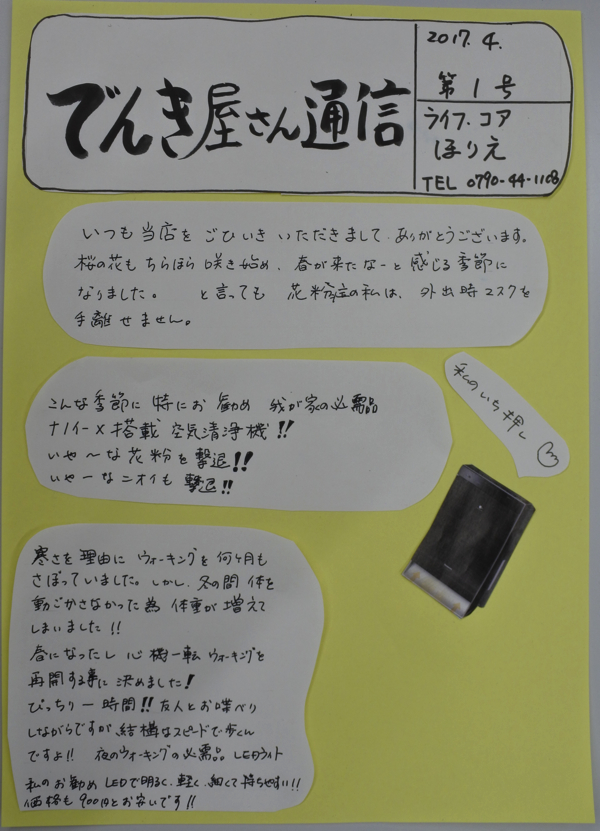 でんき屋さん通信
2017.4.
第1号
ライフ.コア
ほりえ
TEL 0790-44-1108
いつも当店を ごひいき いただきまして、ありがとうございます。
桜の花も ちらほら 咲き始め、春が来たなーと 感じる季節に
なりました。 と言っても 花粉症の私は、外出時マスクを
手離せません。
こんな季節に 特にお勧め 我が家の必需品
ナノイーX搭載 空気清浄機!!
いや〜な花粉を撃退!!
いやーなニオイも撃退!!
私のいち押し
寒さを理由に ウォーキングを 何ヶ月も
さぼっていました。しかし、冬の間 体を
動ごかさなかった為 体重が増えて
しまいました!!
春になったし 心機一転 ウォーキングを
再開する事に決めました!
ぴっちり一時間!! 友人とお喋べり
しながらですが、結構なスピードで歩くん
ですよ!! 夜のウォーキングの必需品 LEDライト
私のお勧め LEDで明るく、軽く、細くて持ちやすい!!
価格も900円とお安いです!!